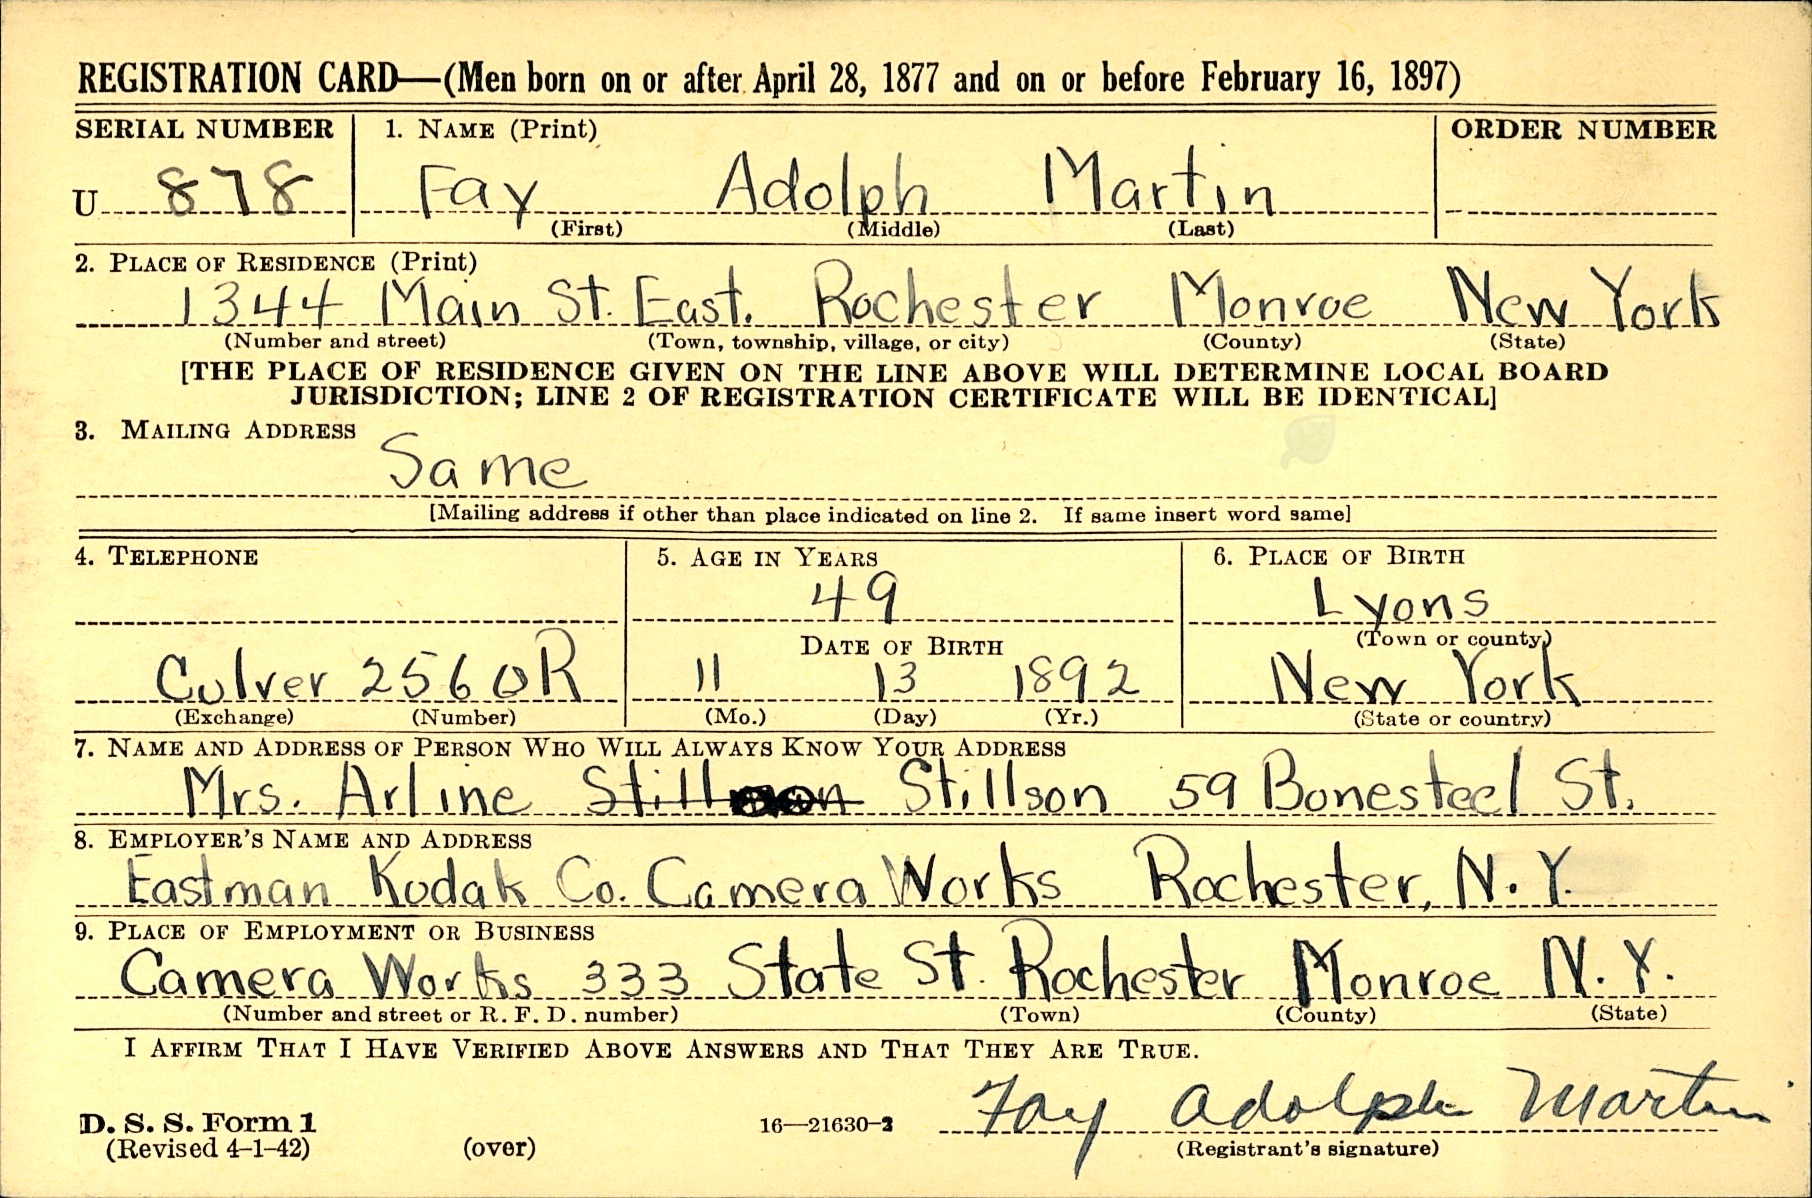 REGISTRATION CARD—(Men born on or after April 28, 1877 and on or before February 16, 1897)
SERIAL NUMBER 1. NAME (Print) ORDER NUMBER
U 878 Fay Adolph Martin
(First) (Middle) (Last)
2. PLACE OF RESIDENCE (Print)
1344 Main St. East. Rochester Monroe New York
(Number and street) (Town, township, village, or city) (County) (State)
[THE PLACE OF RESIDENCE GIVEN ON THE LINE ABOVE WILL DETERMINE LOCAL BOARD
JURISDICTION; LINE 2 OF REGISTRATION CERTIFICATE WILL BE IDENTICAL]
3. MAILING ADDRESS
Same
[Mailing address if other than place indicated on line 2. If same insert word same]
4. TELEPHONE 5. AGE IN YEARS 6. PLACE OF BIRTH
49 Lyons
DATE OF BIRTH (Town or county)
Culver 2560R 11 13 1892 New York
(Exchange) (Number) (Mo.) (Day) (Yr.) (State or country)
7. NAME AND ADDRESS OF PERSON WHO WILL ALWAYS KNOW YOUR ADDRESS
Mrs. Arline Stillson 59 Bonesteel St.
8. EMPLOYER'S NAME AND ADDRESS
Eastman Kodak Co. Camera Works Rochester, N. Y.
9. PLACE OF EMPLOYMENT OR BUSINESS
Camera Works 333 State St. Rochester Monroe N. Y.
(Number and street or R. F. D. number) (Town) (County) (State)
I AFFIRM THAT I HAVE VERIFIED ABOVE ANSWERS AND THAT THEY ARE TRUE.
Fay Adolph Martin
D. S. S. Form 1 16—21630-2
(Revised 4-1-42) (over) (Registrant's signature)